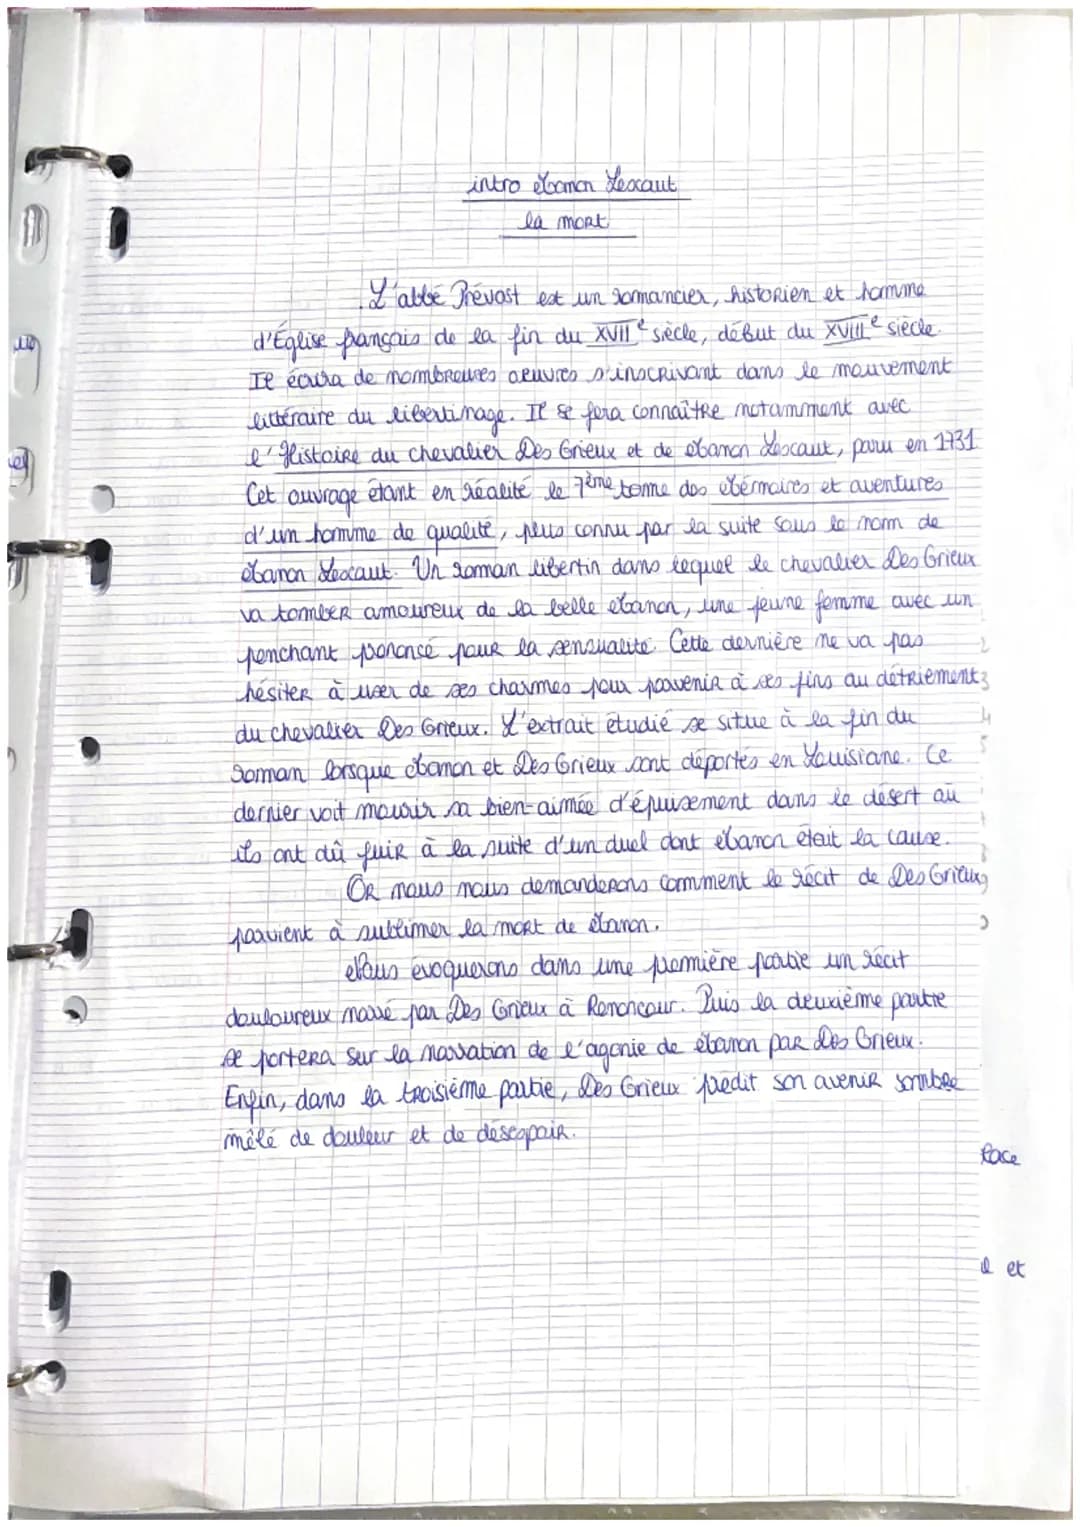 intro Manon Lescaut
la mort
L'abbé Prévost est un romancier, historien et homme
d'Église français de la fin du XVIIe siècle, début du XVIIIe siècle.
Il écrira de nombreuses œuvres s'inscrivant dans le mouvement
littéraire du libertinage. Il se fera connaître notamment avec
l'Histoire du chevalier Des Grieux et de Manon Lescaut, paru en 1731.
Cet ouvrage étant en réalité le 7ème tome des Mémoires et aventures
d'un homme de qualité, plus connu par la suite sous le nom de
Manon Lescaut. Un roman libertin dans lequel le chevalier Des Grieux
va tomber amoureux de la belle Manon, une jeune femme avec un
penchant prononcé pour la sensualité. Cette dernière ne va pas
hésiter à user de ses charmes pour parvenir à ses fins au détriement
du chevalier Des Grieux. L'extrait étudié se situe à la fin du
roman lorsque Manon et Des Grieux sont déportés en Louisiane. Ce
dernier voit mourir sa bien-aimée d'épuisement dans le désert où
ils ont dû fuir à la suite d'un duel dont Manon était la cause.
Or nous nous demanderons comment le récit de Des Grieux
parvient à sublimer la mort de Manon.
Nous évoquerons dans une première partie un récit
douloureux narré par Des Grieux à Renoncour. Puis la deuxième partie
se portera sur la narration de l'agonie de Manon par Des Grieux.
Enfin, dans la troisième partie, Des Grieux prédit son avenir sombre
mêlé de douleur et de désespoir.
face
et